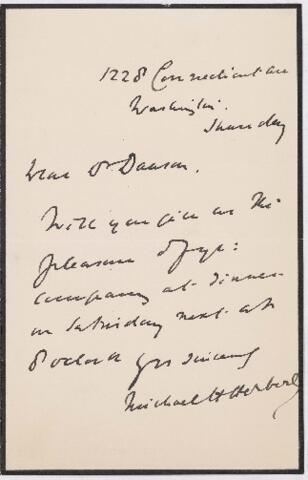 1228 Connecticut Av
Washington.
Thursday
Dear Dr Dawson.
Will you give us the
pleasure of yr:
company at dinner
on Saturday next at
8 o'clock yrs sincerely
Michael H Herbert